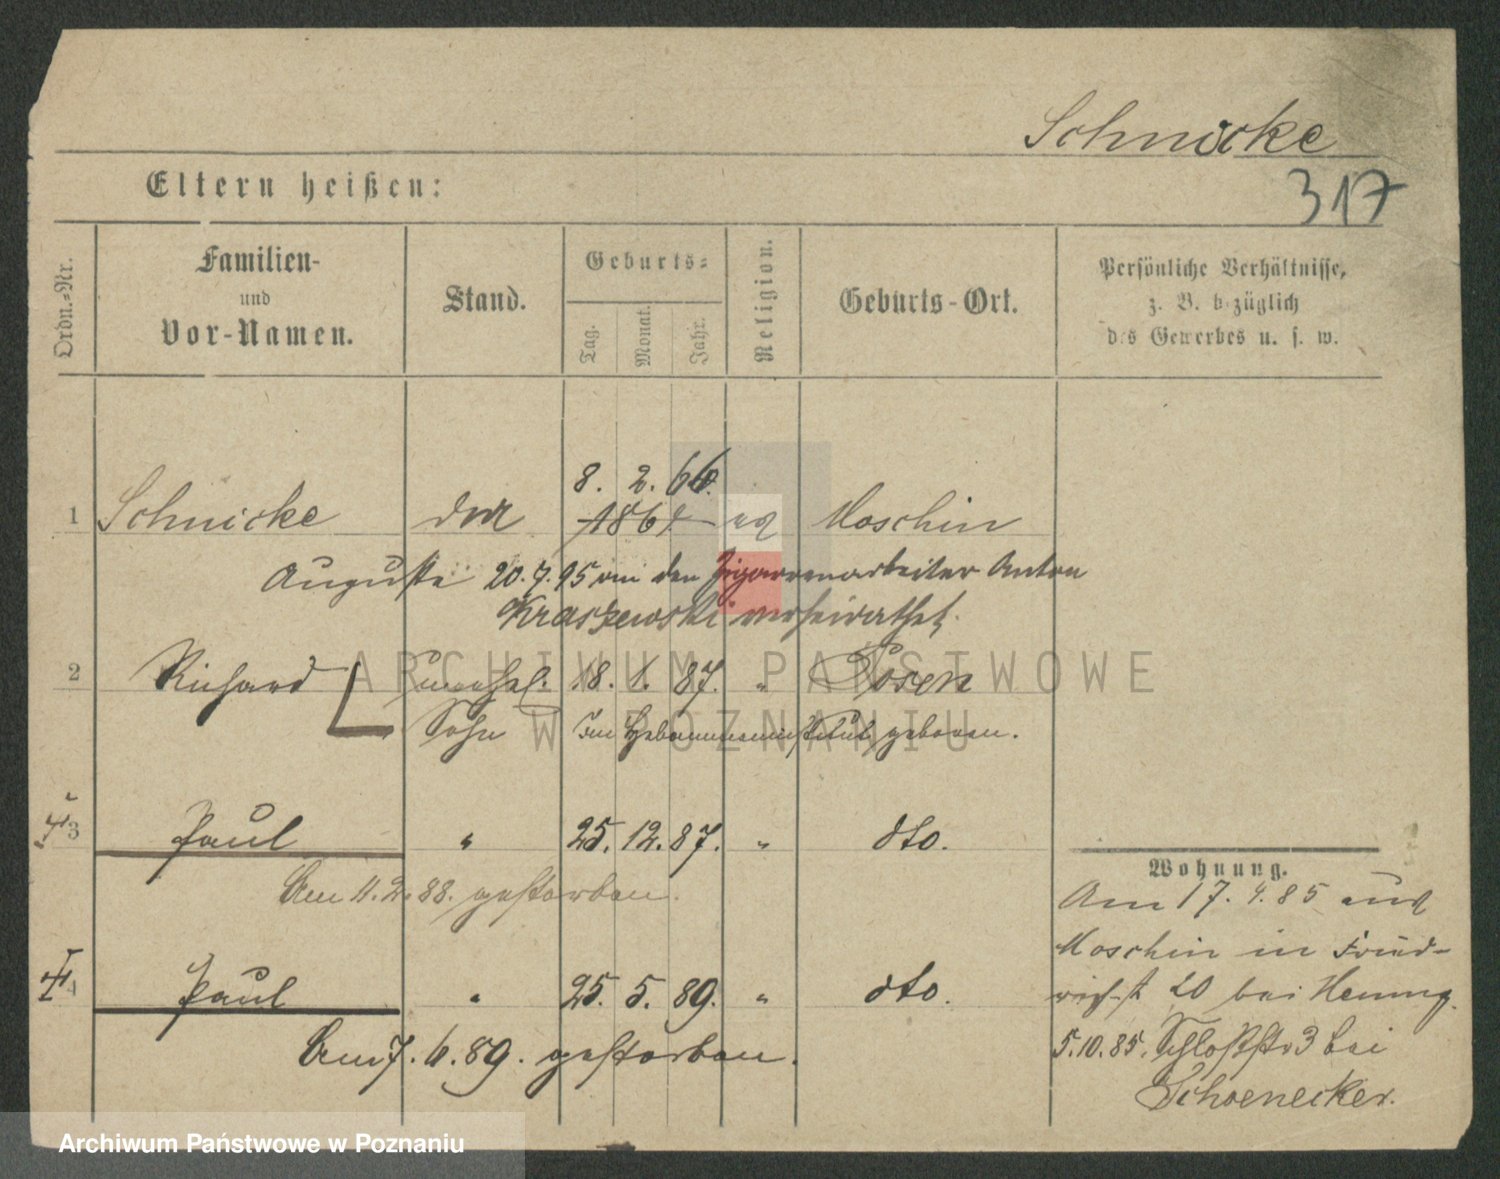 Schnicke
Eltern heißen:
317
Ordn.-Nr.
Familien-
und
Vor-Namen.
Stand.
Geburts-
Tag.
Monat.
Jahr.
Religion.
Geburts-Ort.
Persönliche Verhältnisse,
z. B. bezüglich
des Gewerbes u. s. w.
8. 2. 66.
1 Schnicke 1864 Moschin
Auguste 20.7.95 an den Zigarrenarbeiter Anton
Kraszewski verheirathet.
2 Richard unehel. 18. 1. 87. " Posen
Sohn Im Hebammeninstitut geboren.
3 Paul " 25. 12. 87. " dto.
Am 11.2.88. gestorben.
4 Paul " 25. 5. 89. " dto.
Am 7.6.89. gestorben.
Wohnung.
Am 17.4.85 aus
Moschin in Fried-
richst 20 bei Hennig.
5.10.85. Schloßstr 3 bei
Schoenecker.
ARCHIWUM PAŃSTWOWE
W POZNANIU
Archiwum Państwowe w Poznaniu